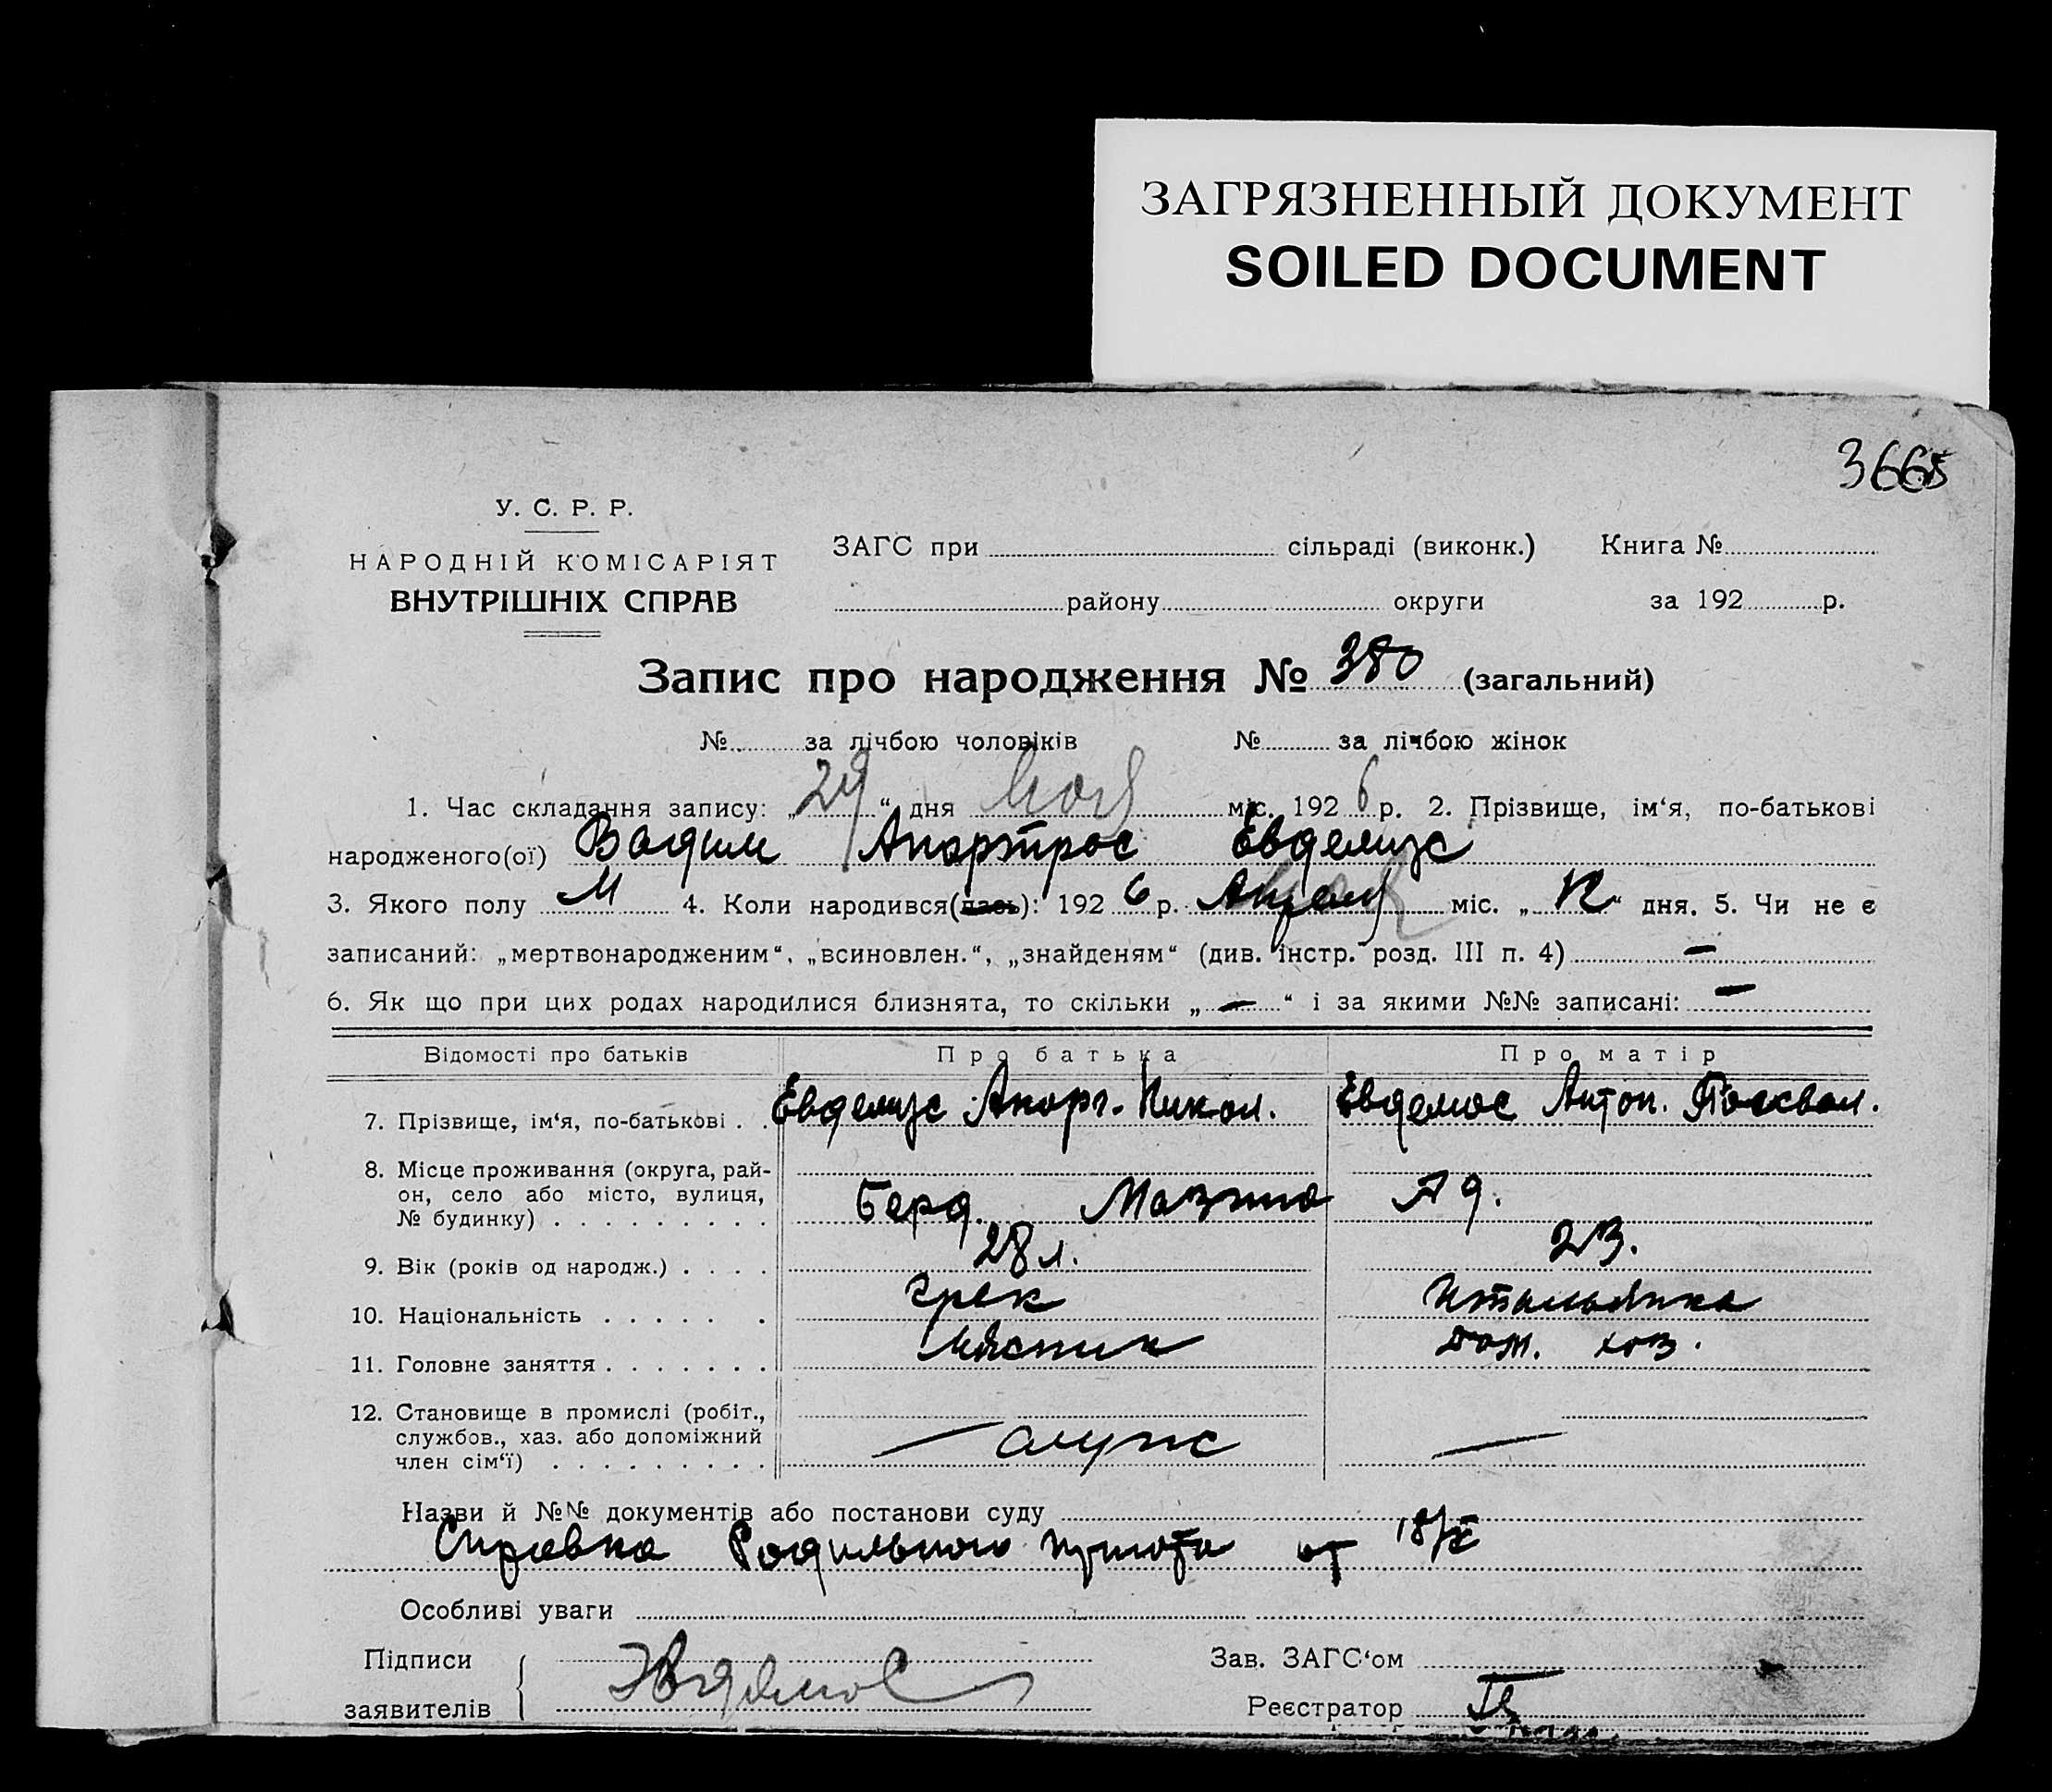 ЗАГРЯЗНЕННЫЙ ДОКУМЕНТ
SOILED DOCUMENT
У. С. Р. Р.
НАРОДНІЙ КОМІСАРІЯТ
ВНУТРІШНІХ СПРАВ
ЗАГС при сільраді (виконк.) Книга №
району округи за 192 р.
Запис про народження № 380 (загальний)
№ за лічбою чоловіків № за лічбою жінок
1. Час складання запису: „29“ дня мая міс. 1926 р. 2. Прізвище, ім‘я, по-батькові
народженого(ої) Вадим Евдемус
3. Якого полу М 4. Коли народився(лась): 1926 р. міс. „ “ дня. 5. Чи не є
записаний: „мертвонародженим“, „всиновлен.“, „знайденям“ (див. інстр. розд. III п. 4) —
6. Як що при цих родах народилися близнята, то скільки „—“ і за якими №№ записані: —
Відомості про батьків Про батька Про матір
7. Прізвище, ім‘я, по-батькові . . Евдемус Никол. Евдемос Антон. Пасквал.
8. Місце проживання (округа, рай-
он, село або місто, вулиця,
№ будинку) . . . . . . . . . Берд.
9. Вік (років од народж.) . . . . 28 л. 23.
10. Національність . . . . . . Грек Итальянка
11. Головне заняття . . . . . . . Мясник дом. хоз.
12. Становище в промислі (робіт.,
службов., хаз. або допоміжний
член сім‘ї) . . . . . . . . . — —
Назви й №№ документів або постанови суду
Справка Родильного приюта от 18/V
Особливі уваги
Підписи Зав. ЗАГС‘ом
заявителів Реєстратор